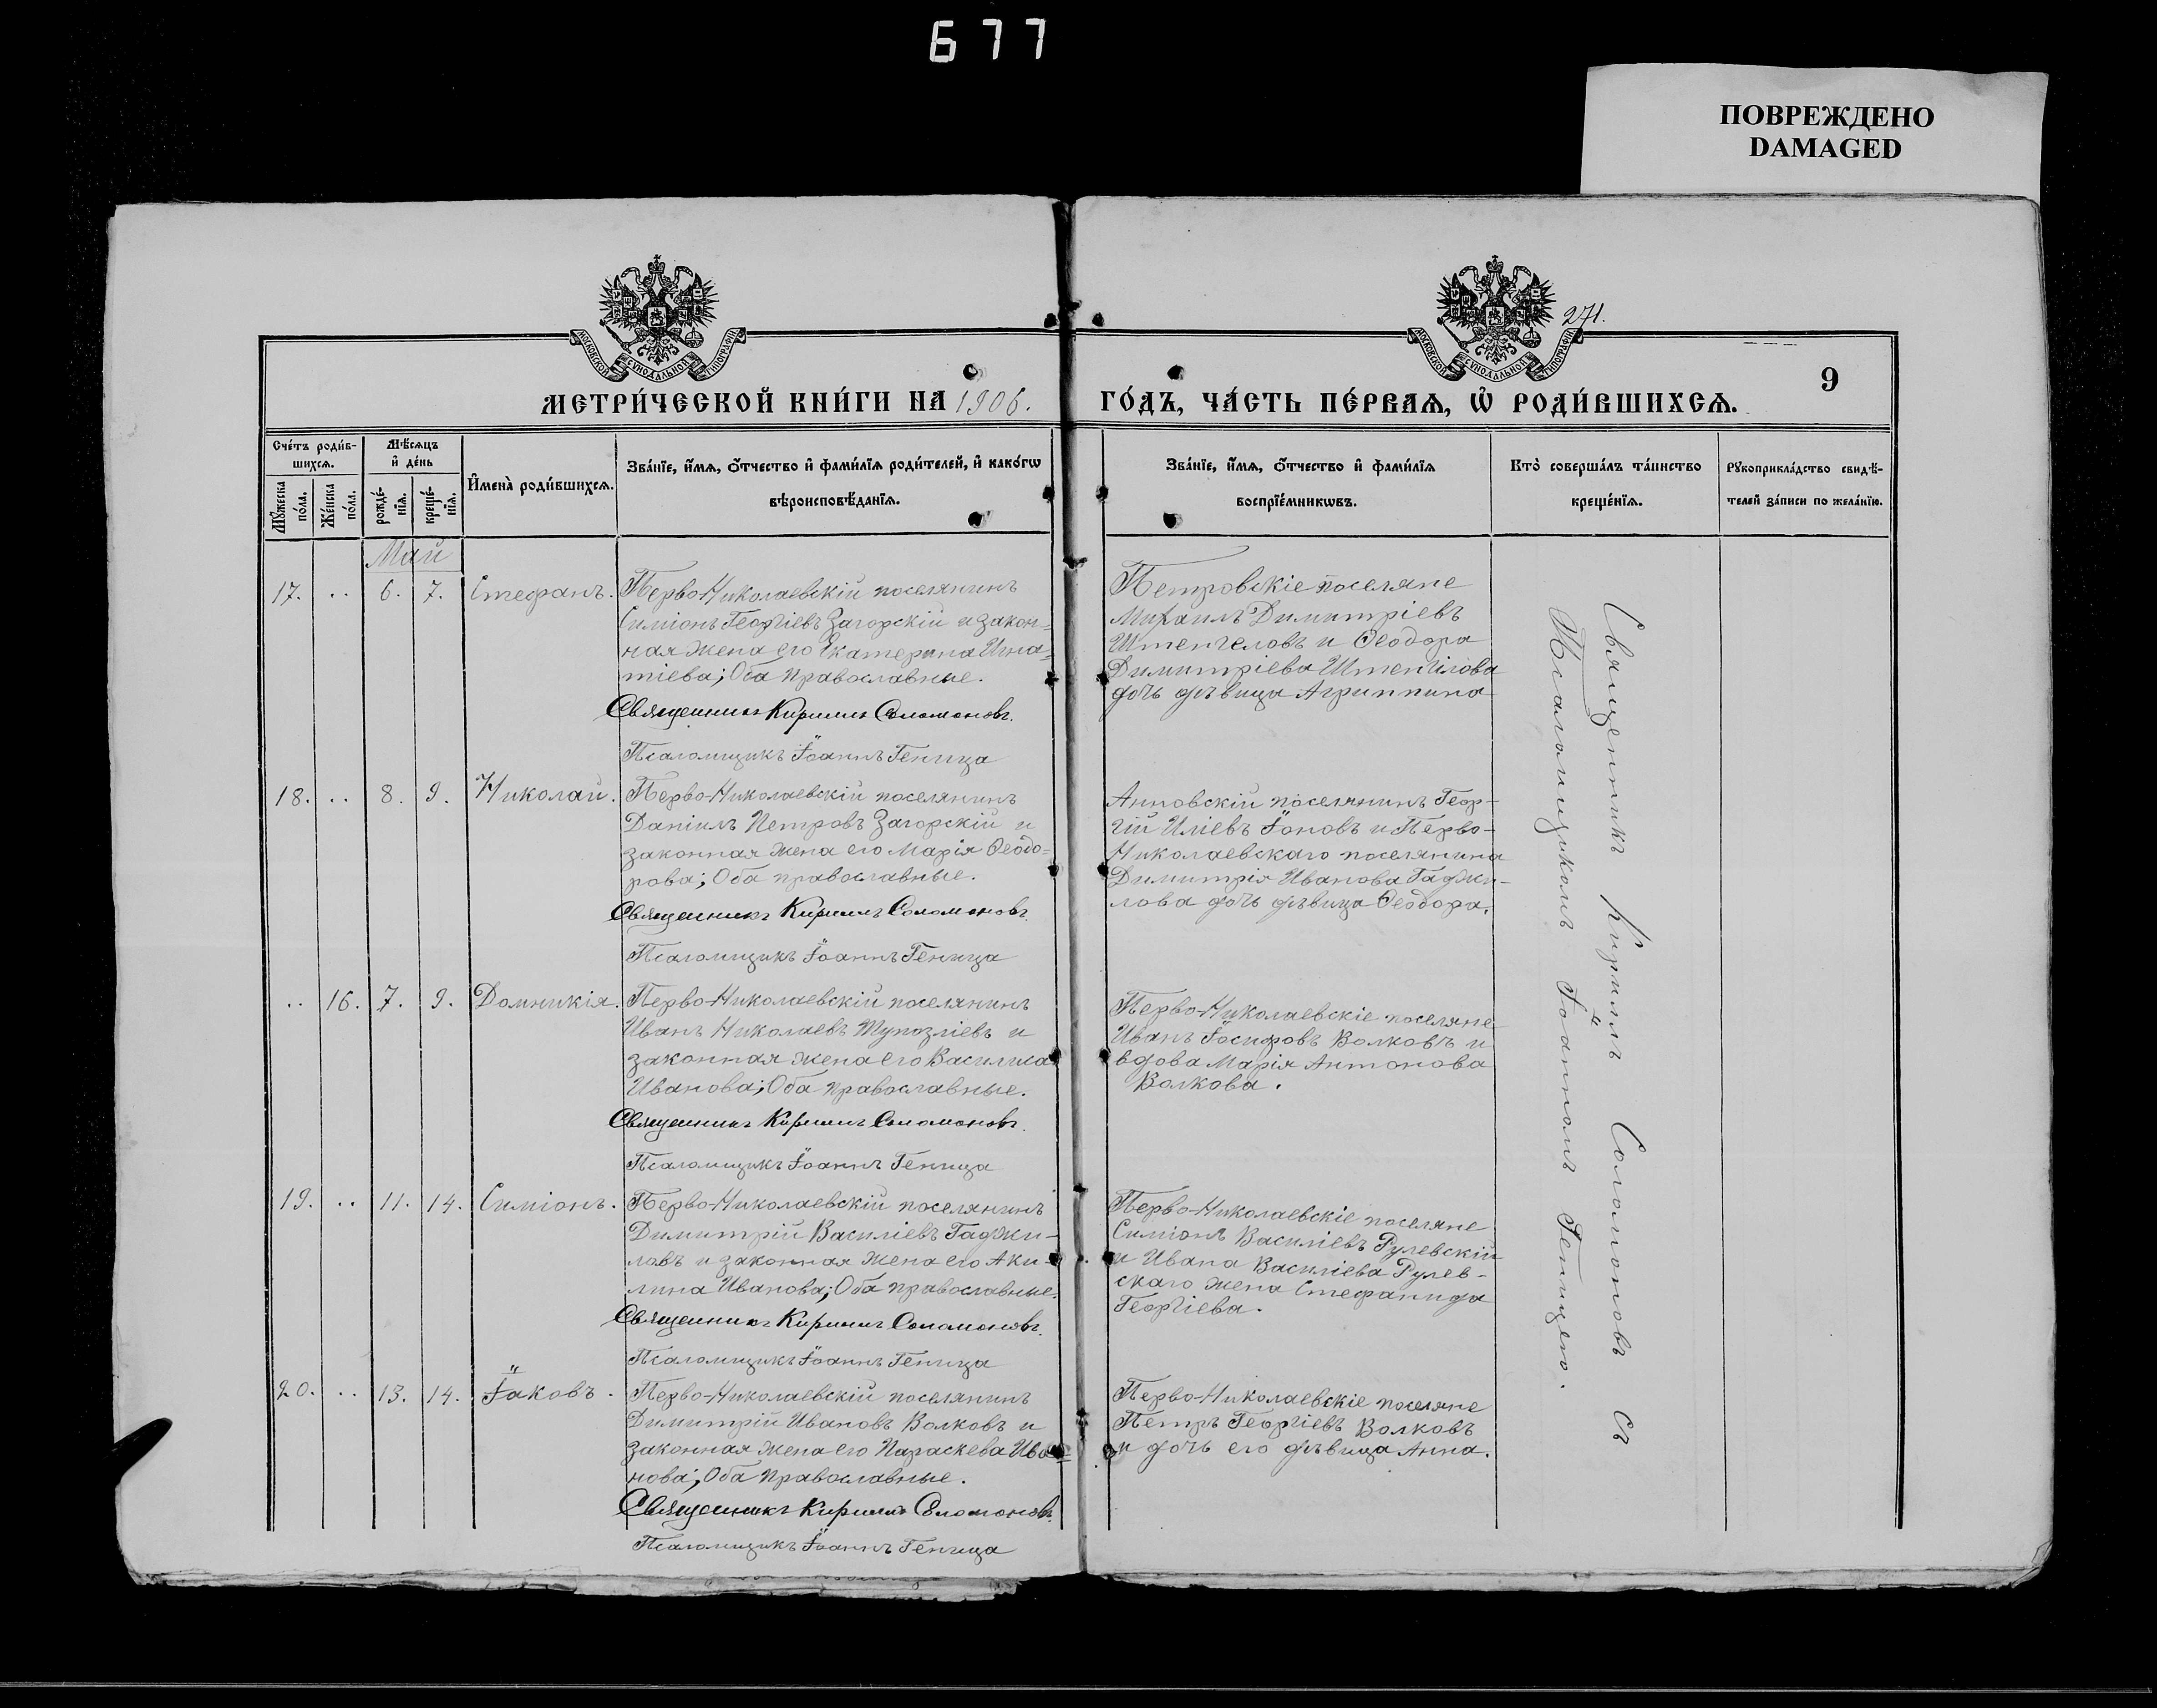 677
ПОВРЕЖДЕНО
DAMAGED
271.
МОСКОВСКОЙ СѴНОДАЛЬНОЙ ТИПОГРАФІИ
МОСКОВСКОЙ СѴНОДАЛЬНОЙ ТИПОГРАФІИ
9
МЕТРИ́ЧЕСКОЙ КНИ́ГИ НА 1906. ГО́ДЪ, ЧА́СТЬ ПЕ́РВАѦ, Ѡ҆ РОДИ́ВШИХСѦ.
Сче́тъ роди́в-
шихсѧ.
Мѣ́сѧцъ
и҆ де́нь
Мꙋ́жеска
по́ла.
Же́нска
по́ла.
рожде́-
нїѧ.
креще́-
нїѧ.
И҆мена̀ роди́вшихсѧ.
Зва́нїе, и҆́мѧ, ѻ҆́тчество и҆ фами́лїѧ роди́телей, и҆ како́гѡ
вѣроисповѣ́данїѧ.
Зва́нїе, и҆́мѧ, ѻ҆́тчество и҆ фами́лїѧ
воспрїе́мникѡвъ.
Кто̀ соверша́лъ та́инство
креще́нїѧ.
Рꙋкоприкла́дство свидѣ́-
телей за́писи по жела́нїю.
Май
17. .. 6. 7. Стефанъ.
Перво-Николаевскій поселянинъ
Симіонъ Георгіевъ Загорскій и закон=
ная жена его Екатерина Игна=
тіева; Оба православные.
Священникъ Кириллъ Соломоновъ.
Псаломщикъ Іоаннъ Геница
Петровскіе поселяне
Михаилъ Димитріевъ
Штенгеловъ и Ѳеодора
Димитріева Штенгілова
дочь дѣвица Агриппина
18. .. 8. 9. Николай.
Перво-Николаевскій поселянинъ
Даніилъ Петровъ Загорскій и
законная жена его Марія Ѳеодо=
рова; Оба православные.
Священникъ Кириллъ Соломоновъ.
Псаломщикъ Іоаннъ Геница
Анновскій поселянинъ Геор-
гій Иліевъ Іоновъ и Перво-
Николаевскаго поселянина
Димитрія Иванова Гаджи-
лова дочь дѣвица Ѳеодора.
.. 16. 7. 9. Домникія.
Перво-Николаевскій поселянинъ
Иванъ Николаевъ Тупозліевъ и
законная жена его Василиса
Иванова; Оба православные.
Священникъ Кириллъ Соломоновъ.
Псаломщикъ Іоаннъ Геница
Перво-Николаевскіе поселяне
Иванъ Іосифовъ Волковъ и
вдова Марія Антонова
Волкова.
19. .. 11. 14. Симіонъ.
Перво-Николаевскій поселянинъ
Димитрій Василіевъ Гаджи-
ловъ и законная жена его Аки-
лина Иванова; Оба православные.
Священникъ Кириллъ Соломоновъ.
Псаломщикъ Іоаннъ Геница
Перво-Николаевскіе поселяне
Симіонъ Василіевъ Рулевскій
и Ивана Василіева Рулев-
скаго жена Стефанида
Георгіева.
20. .. 13. 14. Іаковъ.
Перво-Николаевскій поселянинъ
Димитрій Ивановъ Волковъ и
законная жена его Параскева Ива=
нова; Оба православные.
Священникъ Кириллъ Соломоновъ.
Псаломщикъ Іоаннъ Геница
Перво-Николаевскіе поселяне
Петръ Георгіевъ Волковъ
и дочь его дѣвица Анна.
Священникъ Кириллъ Соломоновъ съ
Псаломщикомъ Іоанномъ Геницею.